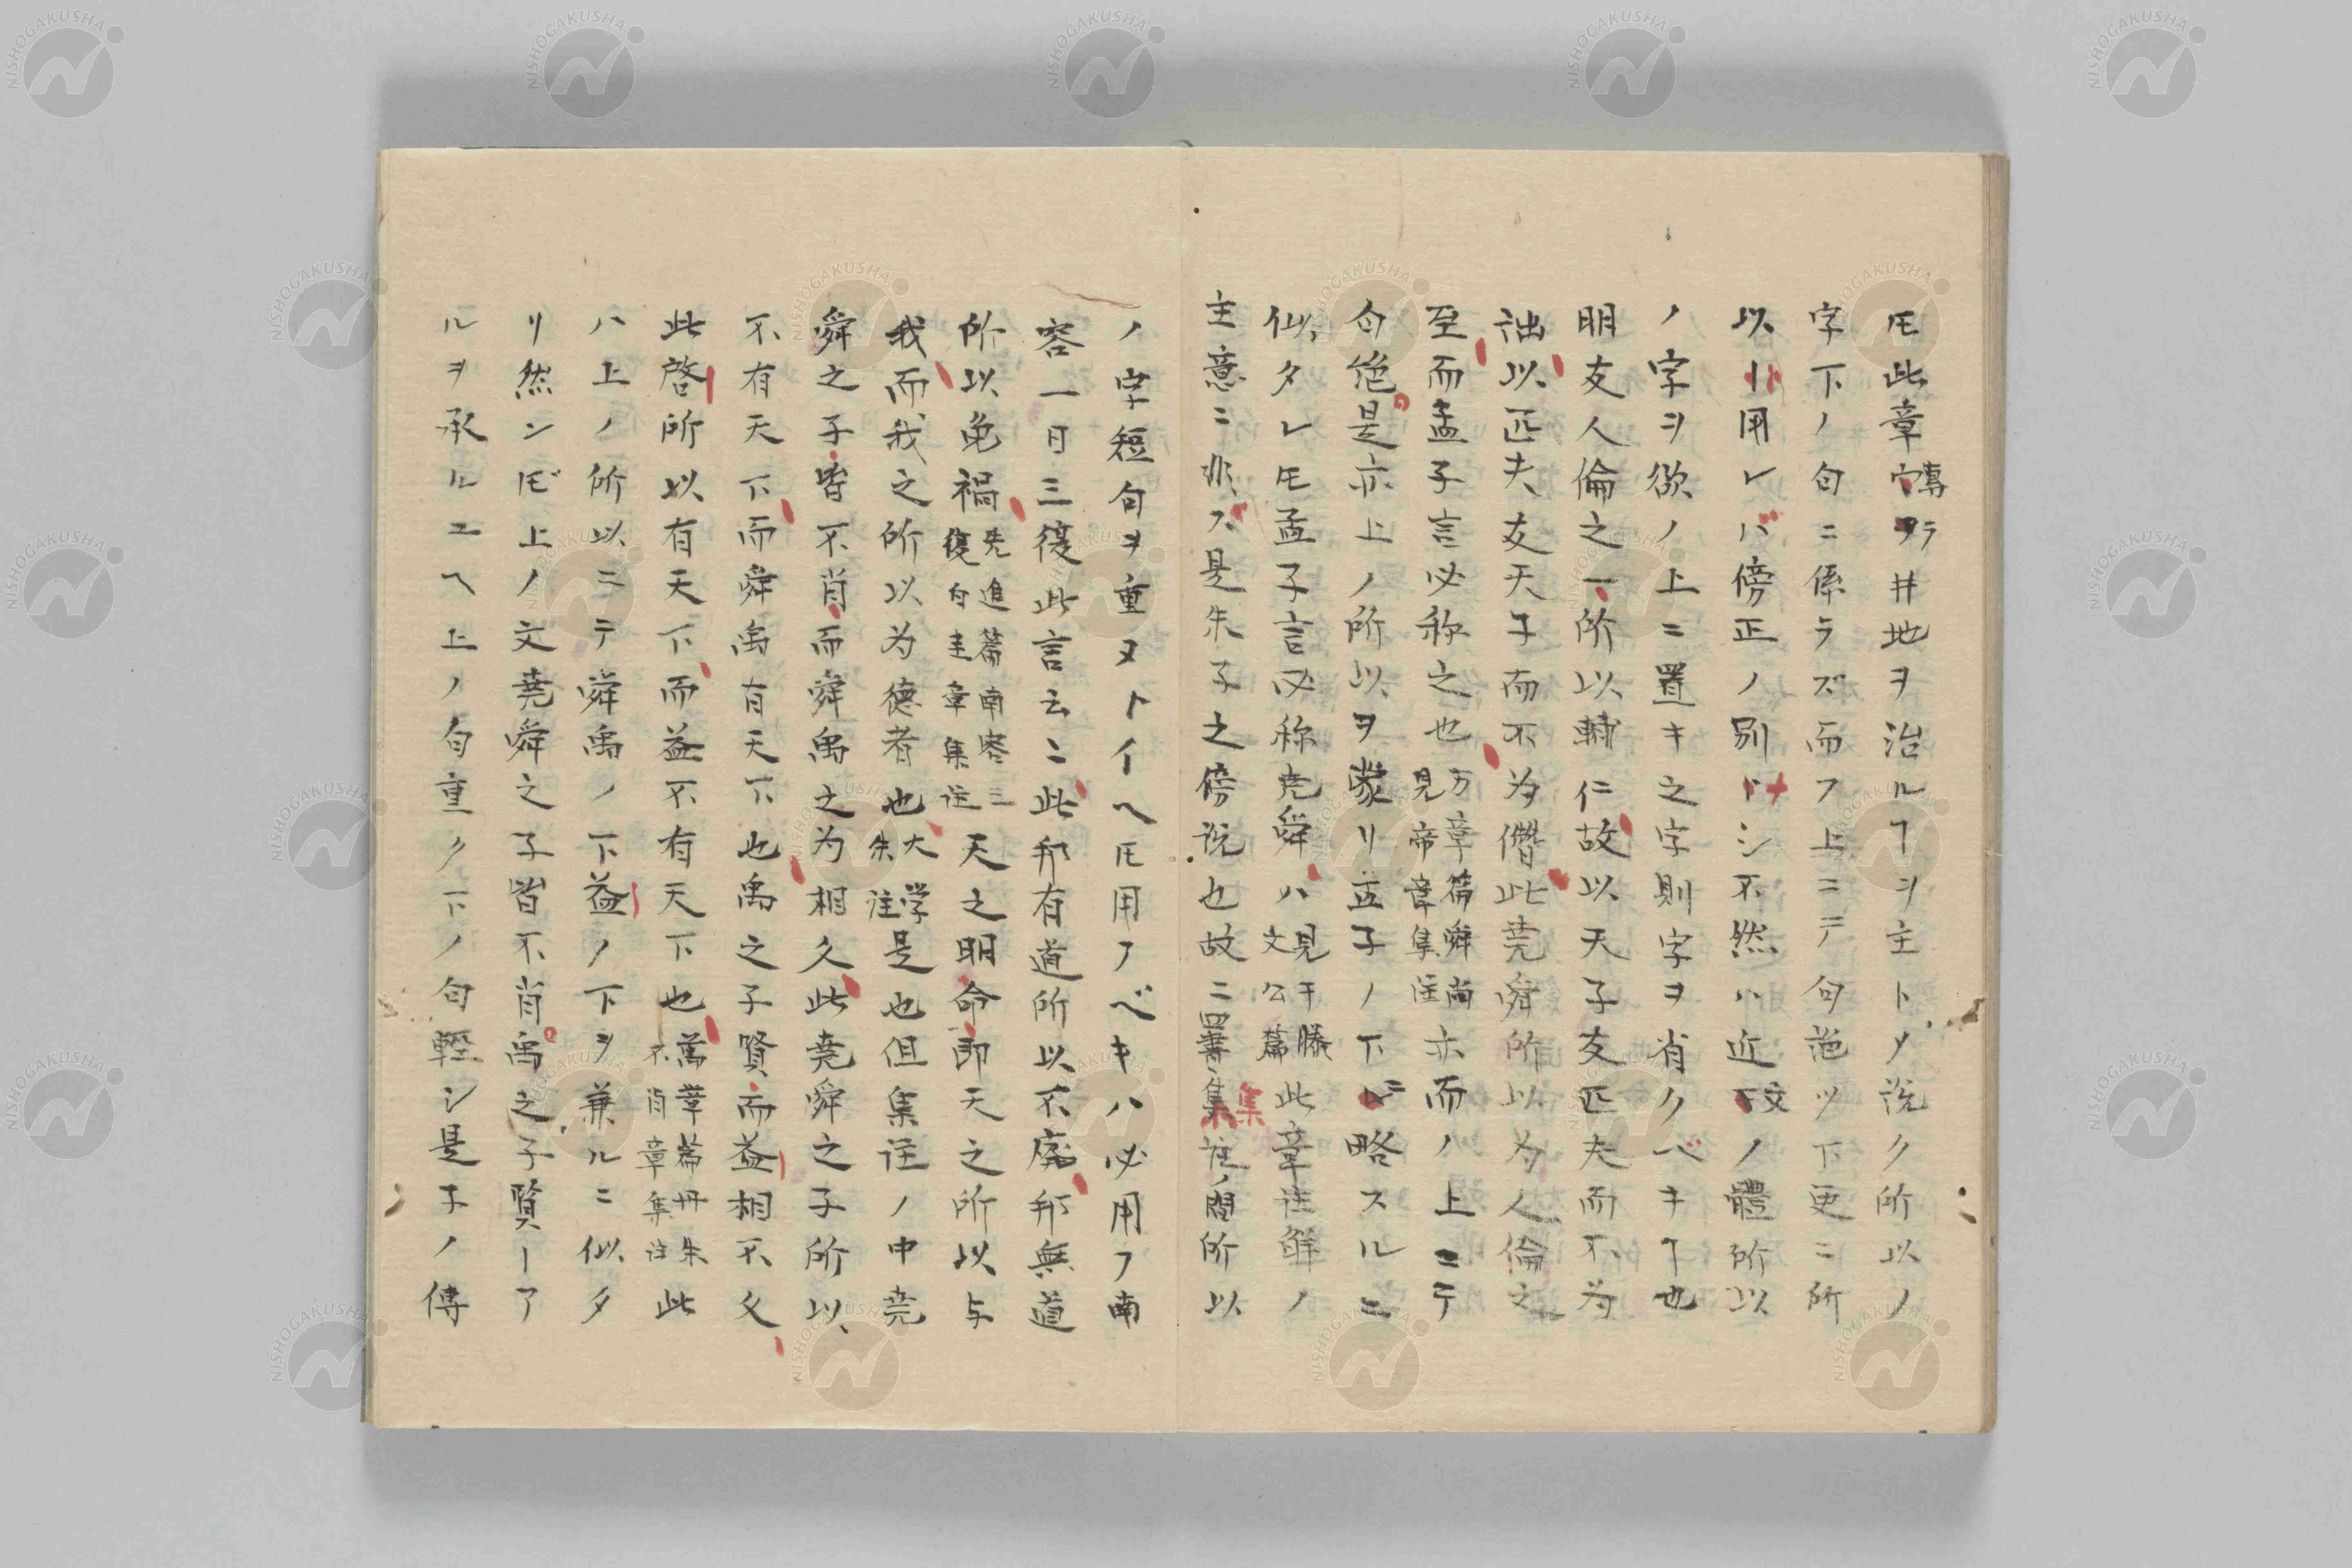 𪜈此章専ラ井地ヲ治ルヿヲ主トメ説ク所以ノ
字下ノ句ニ係ラズ而フ上ニテ句絶ツ下更ニ所
以ヿ用レバ傍正ノ別ナシ不然ハ近文ノ體所以
ノ字ヲ欲ノ上ニ置キ之字則字ヲ省クベキヿ也
朋友人倫之一所以輔仁故以天子友匹夫而不為
詘以匹夫友天子而不為僭此尭舜所以為人倫之
至而孟子言必称之也万章篇舜尚見帝章集注亦而ノ上ニテ
句絶是亦上ノ所以ヲ蒙リ孟子ノ下ニ略スルニ
似タレ𪜈孟子言必称尭舜ハ見于滕文公篇此章註解ノ
主意ニ非ス是朱子之傍説也故ニ四書集註ノ間所以
ノ字短句ヲ重ヌトイヘ𪜈用フベキハ必用フ南
容一日三復此言云々此邦有道所以不廃邦無道
所以免禍先進篇南容三復白圭章集注天之明命即天之所以与
我而我之所以为德者也大学朱註是也但集註ノ中尭
舜之子皆不肖而舜禹之为相久此尭舜之子所以
不有天下而舜禹有天下也禹之子賢而益相不久
此啓所以有天下而益不有天下也萬章篇丹朱不肖章集注此
ハ上ノ所以ニテ舜禹ノ下益ノ下ヲ兼ルニ似タ
リ然ン𪜈上ノ文尭舜之子皆不肖禹之子賢ーア
ルヲ承ルユヘ上ノ句重ク下ノ句輕シ是等ノ傳